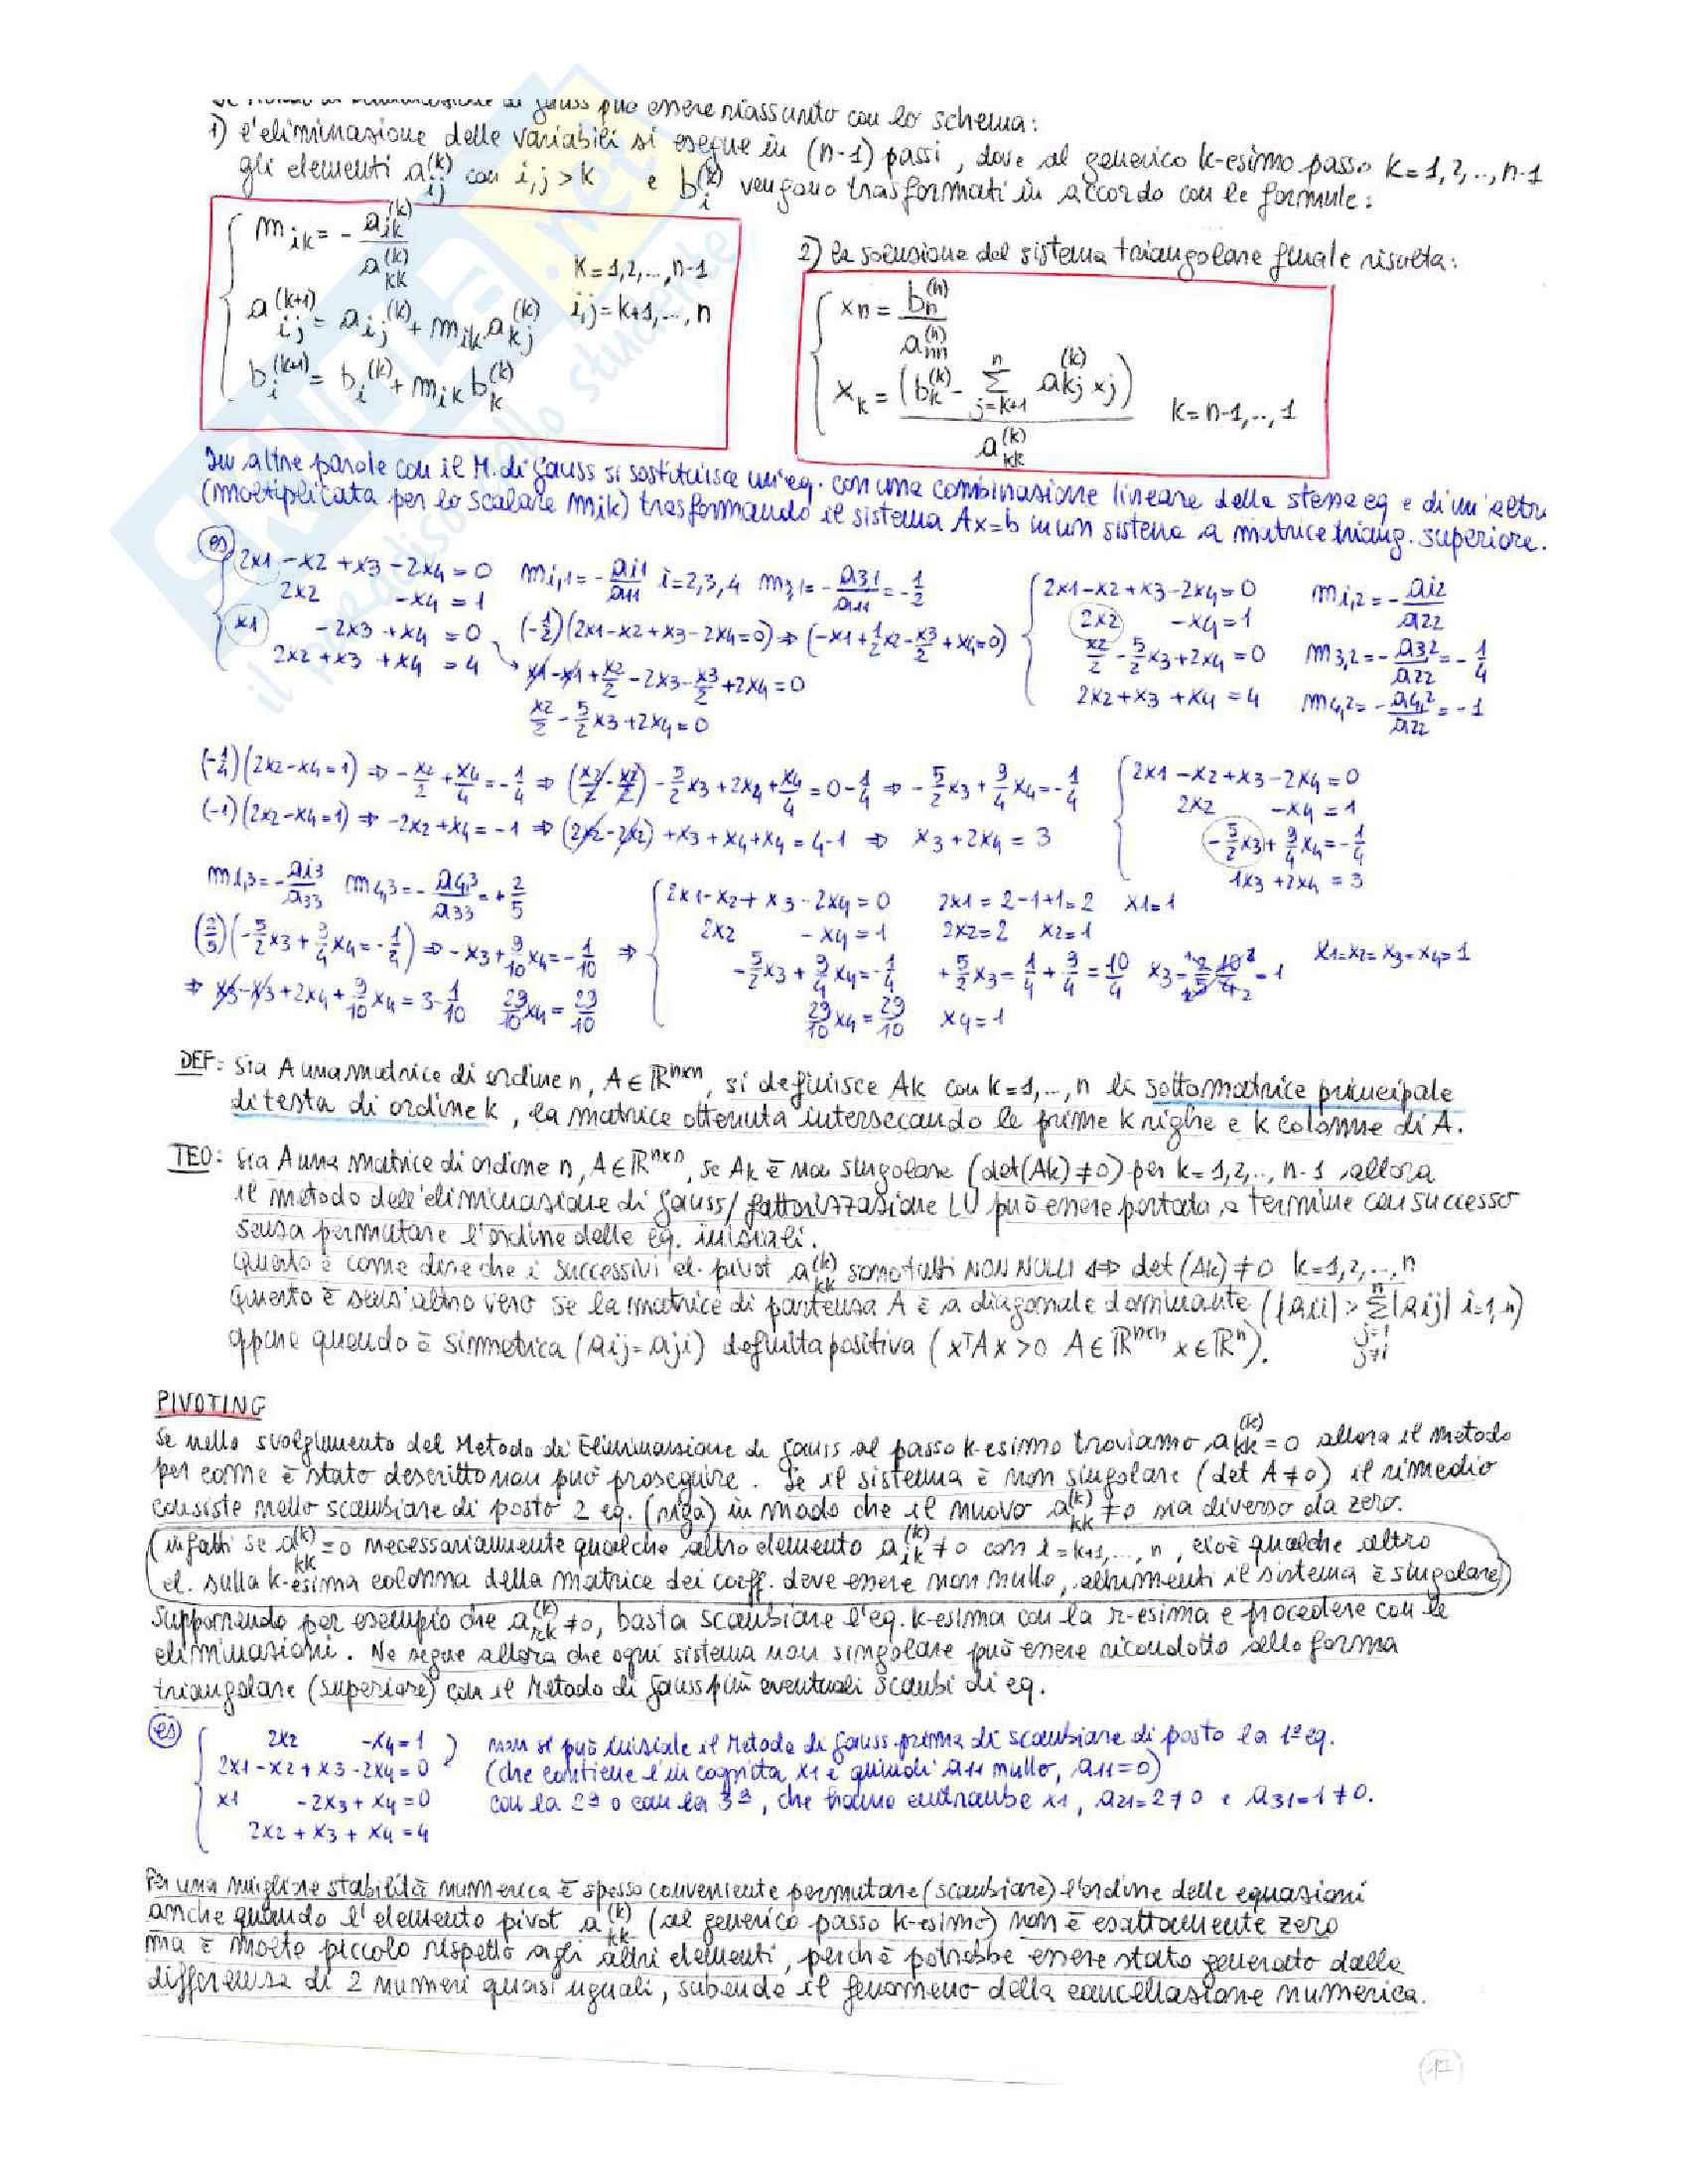 Il metodo di eliminazione di Gauss può essere riassunto con lo schema:
1) l'eliminazione delle variabili si esegue in (n-1) passi, dove al generico k-esimo passo k=1,2,..,n-1
gli elementi a_ij^(k) con i,j>k e b_i^(k) vengono trasformati in accordo con le formule:
m_ik = - a_ik^(k) / a_kk^(k)
K=1,2,...,n-1
a_ij^(k+1) = a_ij^(k) + m_ik a_kj^(k) i,j=k+1,...,n
b_i^(k+1) = b_i^(k) + m_ik b_k^(k)
2) la soluzione del sistema triangolare finale risulta:
xn = b_n^(n) / a_nn^(n)
x_k = (b_k^(k) - Σ_{j=k+1}^n a_kj^(k) xj) / a_kk^(k) K=n-1,..,1
In altre parole con il M. di Gauss si sostituisce un'eq. con una combinazione lineare della stessa eq e di un'altra
(moltiplicata per lo scalare mik) trasformando il sistema Ax=b in un sistema a matrice triang. superiore.
es
2x1-x2+x3-2x4=0
2x2 -x4=1
x1 -2x3+x4=0
2x2+x3+x4=4
mi,1=-ai1/a11 i=2,3,4 m3,1=-a31/a11=-1/2
(-1/2)(2x1-x2+x3-2x4=0)⇒(-x1+1/2x2-x3/2+x4=0)
x1-x1+x2/2-2x3-x3/2+2x4=0
x2/2-5/2x3+2x4=0
2x1-x2+x3-2x4=0
2x2 -x4=1
x2/2-5/2x3+2x4=0
2x2+x3+x4=4
mi,2=-ai2/a22
m3,2=-a32/a22=-1/4
m4,2=-a4,2/a22=-1
(-1/4)(2x2-x4=1)⇒-x2/2+x4/4=-1/4⇒(x2/2-x2/2)-5/2x3+2x4+x4/4=0-1/4⇒-5/2x3+9/4x4=-1/4
(-1)(2x2-x4=1)⇒-2x2+x4=-1⇒(2x2-2x2)+x3+x4+x4=4-1⇒ x3+2x4=3
2x1-x2+x3-2x4=0
2x2 -x4=1
-5/2x3+9/4x4=-1/4
1x3+2x4=3
mi,3=-ai3/a33 m4,3=-a4,3/a33=+2/5
(2/5)(-5/2x3+9/4x4=-1/4)⇒-x3+9/10x4=-1/10 ⇒
⇒ x3-x3+2x4+9/10x4=3-1/10 29/10x4=29/10
2x1-x2+x3-2x4=0 2x1=2-1+1=2 x1=1
2x2 -x4=1 2x2=2 x2=1
-5/2x3+9/4x4=-1/4 +5/2x3=1/4+9/4=10/4 x3=2/5 10/4=1
29/10x4=29/10 x4=1
x1=x2=x3=x4=1
DEF: Sia A una matrice di ordine n, A∈ℝ^nxn, si definisce Ak con k=1,..,n la sottomatrice principale
di testa di ordine k, la matrice ottenuta intersecando le prime k righe e k colonne di A.
TEO: Sia A una matrice di ordine n, A∈ℝ^nxn, se Ak è non singolare (det(Ak)≠0) per k=1,2,..,n-1 allora
il metodo dell'eliminazione di Gauss/fattorizzazione LU può essere portata a termine con successo
senza permutare l'ordine delle eq. iniziali.
Questo è come dire che i successivi el. pivot a_kk^(k) sono tutti NON NULLI ⇔ det(Ak)≠0 k=1,2,..,n
Questo è senz'altro vero se la matrice di partenza A è a diagonale dominante (|aii|>Σ_{j=1, j≠i}^n|aij| i=1,n)
oppure quando è simmetrica (aij=aji) definita positiva (x^T Ax>0 A∈ℝ^nxn x∈ℝ^n).
PIVOTING
Se nello svolgimento del Metodo di Eliminazione di Gauss al passo k-esimo troviamo a_kk^(k)=0 allora il metodo
per come è stato descritto non può proseguire. Se il sistema è non singolare (det A≠0) il rimedio
consiste nello scambiare di posto 2 eq. (riga) in modo che il nuovo a_kk^(k)≠0 sia diverso da zero.
(infatti se a_kk^(k)=0 necessariamente qualche altro elemento a_ik^(k)≠0 con i=k+1,...,n, cioè qualche altro
el. sulla k-esima colonna della matrice dei coeff. deve essere non nullo, altrimenti il sistema è singolare)
Supponendo per esempio che a_rk^(k)≠0, basta scambiare l'eq. k-esima con la r-esima e procedere con le
eliminazioni. Ne segue allora che ogni sistema non singolare può essere ricondotto alla forma
triangolare (superiore) con il Metodo di Gauss più eventuali scambi di eq.
es
2x2 -x4=1
2x1-x2+x3-2x4=0
x1 -2x3+x4=0
2x2+x3+x4=4
non si può iniziale il Metodo di Gauss prima di scambiare di posto la 1ª eq.
(che contiene l'incognita x1 e quindi a11 nullo, a11=0)
con la 2ª o con la 3ª, che hanno entrambe x1, a21=2≠0 e a31=1≠0.
Per una migliore stabilità numerica è spesso conveniente permutare (scambiare) l'ordine delle equazioni
anche quando l'elemento pivot a_kk^(k) (al generico passo k-esimo) non è esattamente zero
ma è molto piccolo rispetto agli altri elementi, perchè potrebbe essere stato generato dalla
differenza di 2 numeri quasi uguali, subendo il fenomeno della cancellazione numerica.
SKUOLA.net
il paradiso dello studente